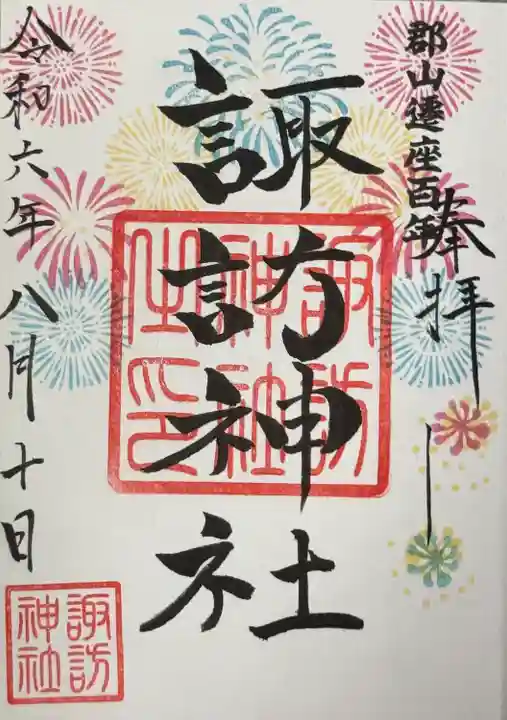 郡山遷座百年
奉拝
諏訪神社
諏訪
神社
之印
令和六年八月十日
諏訪
神社